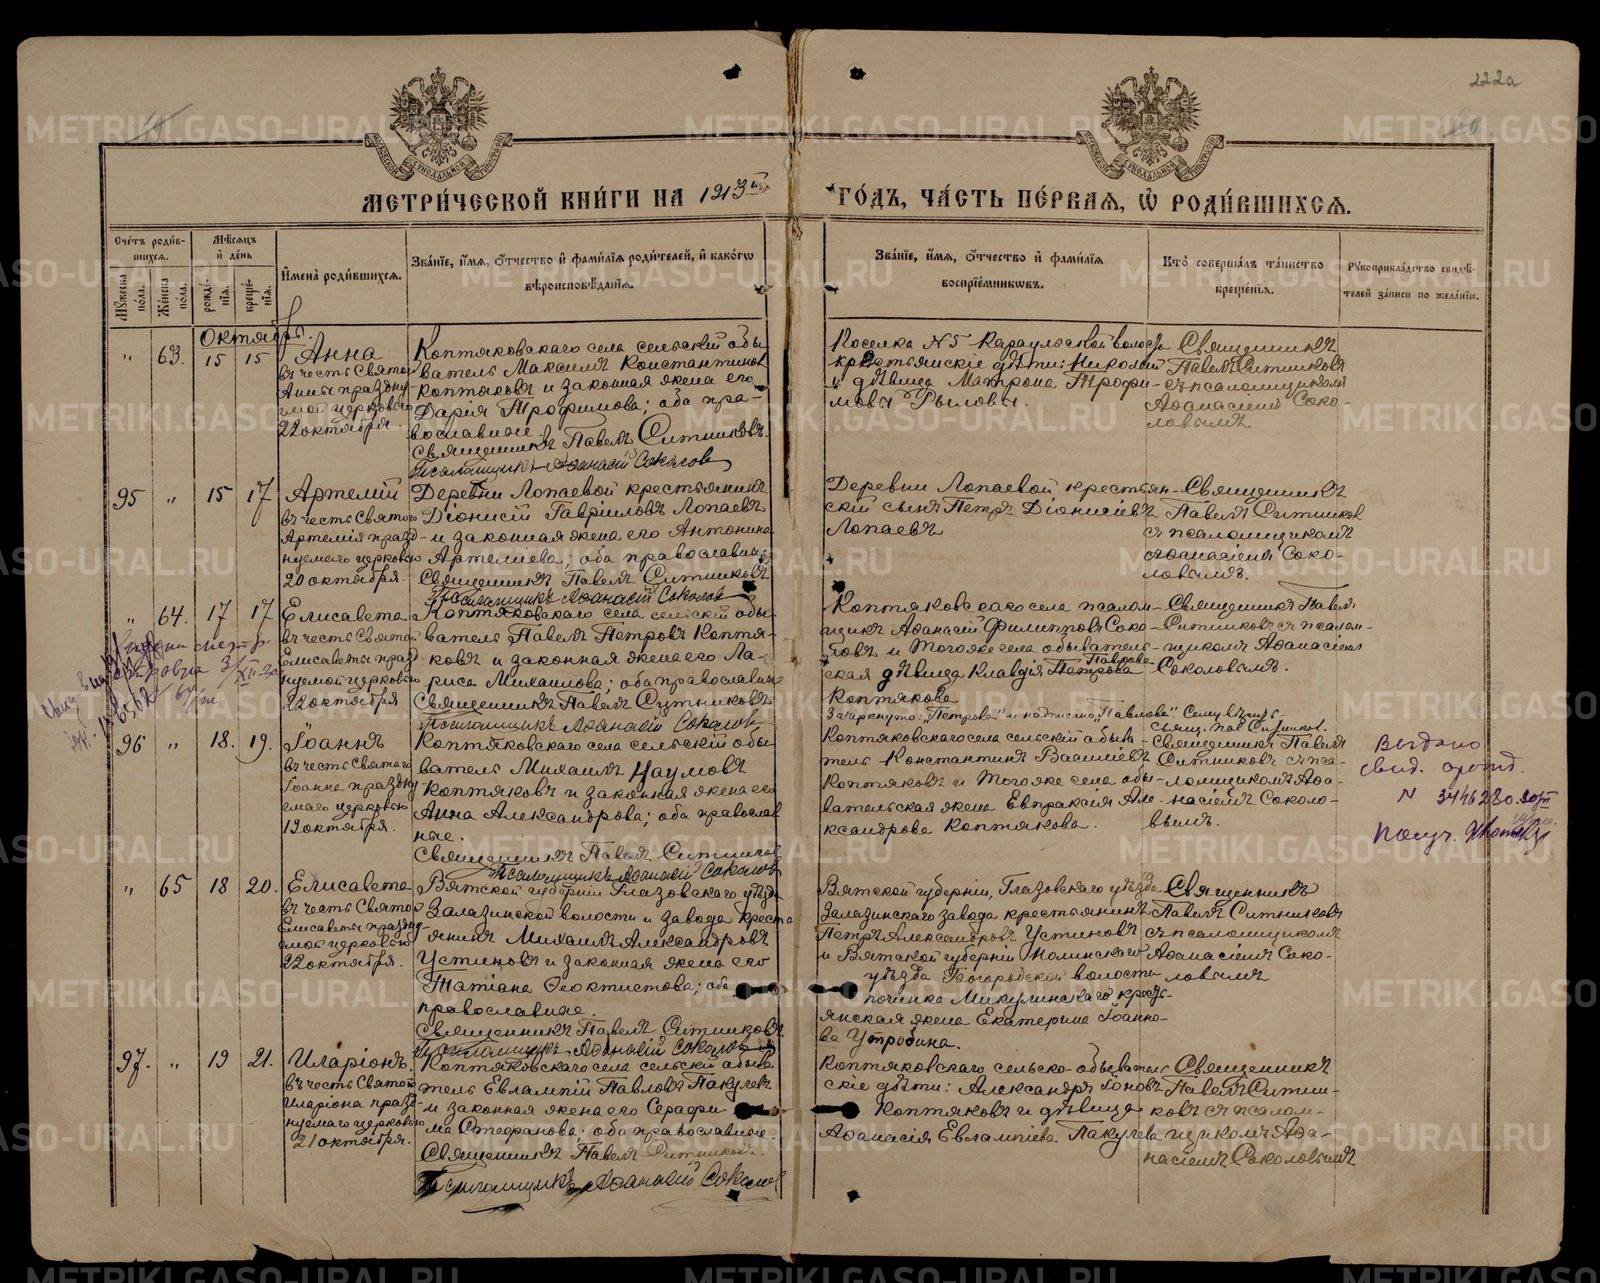 222а
МЕТРИ́ЧЕСКОЙ КНИ́ГИ НА 1913й
ГО́ДЪ, ЧА́СТЬ ПЕ́РВАЯ, Ѽ РОДИ́ВШИХСЯ.
Сче́тъ роди́в-
шихся.
Мѣ́сяцъ
и҆ де́нь
И҆мена̀ роди́вшихся.
Зва́нїе, и҆́мя, о҆́тчество и҆ фами́лїя роди́телей, и҆ како́гѡ
вѣроисповѣ́данїя.
Зва́нїе, и҆́мя, о҆́тчество и҆ фами́лїя
воспрїе́мникѡвъ.
Кто̀ соверша́лъ та́инство
креще́нїя.
Рꙋкоприкла́дство свидѣ́-
телей за́писи по жела́нїю.
Мꙋ́жеска
по́ла.
Же́нска
по́ла.
рожде́-
нїя.
креще́-
нїя.
Октябрь.
" 63. 15 15
Анна
въ честь Святой
Анны праздну-
емой церковью
22 октября.
Коптяковскаго села сельскій обы
ватель Максимъ Константиновъ
Коптяковъ и законная жена его
Дарія Трофимова; оба пра-
вославные.
Священникъ Павелъ Ситниковъ.
Псаломщикъ Аѳанасій Соколовъ
Поселка N5 Караульской волости
крестьянскіе дѣти: Николай
и дѣвица Матрона Трофи-
мовы Рыловы.
Священникъ
Павелъ Ситниковъ
съ псаломщикомъ
Аѳанасіемъ Соко-
ловымъ
95 " 15 17
Артемій
въ честь Святого
Артемія празд-
нуемаго церковью
20 октября.
Деревни Лопаевой крестьянинъ
Діонисій Гавріиловъ Лопаевъ
и законная жена его Антонина
Артеміева; оба православные
Священникъ Павелъ Ситниковъ
Псаломщикъ Аѳанасій Соколовъ
Деревни Лопаевой крестьян-
скій сынъ Петръ Діонисіевъ
Лопаевъ
Священникъ
Павелъ Ситников
съ псаломщикомъ
Аѳанасіемъ Соко-
ловымъ.
" 64. 17 17
Елисавета
въ честь Святой
Елисаветы празд-
нуемой церковью
22 октября
Коптяковскаго села сельскій обы
ватель Павелъ Петровъ Коптя-
ковъ и законная жена его Ла-
риса Михаилова; оба православные
Священникъ Павелъ Ситниковъ
Псаломщикъ Аѳанасій Соколовъ
Коптяковскаго села псалом-
щикъ Аѳанасій Филипповъ Соко-
ловъ и того же села обыватель-
ская дѣвица Клавдія Петрова Павлова
Коптякова
Зачеркнуто: "Петрова" и надписано "Павлова".
Священникъ Павелъ
Ситниковъ съ псалом-
щикомъ Аѳанасіемъ
Соколовымъ.
96 " 18. 19.
Іоаннъ
въ честь Святаго
Іоанна праздну
емаго церковью
19 октября.
Коптяковскаго села сельскій обы
ватель Михаилъ Наумовъ
Коптяковъ и законная жена его
Анна Александрова; оба православ
ные.
Священникъ Павелъ Ситников
Псаломщикъ Аѳанасій Соколов
Коптяковскаго села сельскій обыва-
тель Константинъ Васильевъ
Коптяковъ и того же села обы-
вательская жена Евпраксія Але-
ксандрова Коптякова.
Священникъ Павелъ
Ситниковъ съ пса-
ломщикомъ Аѳа-
насіемъ Соколо-
вымъ.
Выдано
свид.
N 3446280
Получ.
" 65 18 20.
Елисавета
въ честь Святой
Елисаветы праздну-
емой церковью
22 октября.
Вятской губерніи Глазовскаго уѣзда
Залазинской волости и завода кресть
янинъ Михаилъ Александровъ
Устиновъ и законная жена его
Татіана Ѳеоктистова; оба
православные.
Священникъ Павелъ Ситниковъ
Псаломщикъ Аѳанасій Соколовъ
Вятской губерніи, Глазовскаго уѣзда
Залазинскаго завода крестьянинъ
Петръ Александровъ Устиновъ
и Вятской губерніи Нолинскаго
уѣзда Богородской волости
починка Микулинскаго кресть-
янская жена Екатерина Іоанно-
ва Утробина.
Священникъ
Павелъ Ситниковъ
съ псаломщикомъ
Аѳанасіемъ Соко-
ловымъ
97. " 19 21.
Иларіонъ.
въ честь Святого
Иларіона празд-
нуемаго церковью
21 октября.
Коптяковскаго села сельскій обыва
тель Евлампій Павловъ Пакулевъ
и законная жена его Серафи-
ма Стефанова; оба православные.
Священникъ Павелъ Ситников.
Псаломщикъ Аѳанасій Соколов
Коптяковскаго сельско-обыватель
скіе дѣти: Александръ Іоновъ
Коптяковъ и дѣвица
Аѳанасія Евлампіева Пакулева
Священникъ
Павелъ Ситни-
ковъ съ псалом-
щикомъ Аѳа-
насіемъ Соколовымъ
METRIKI.GASO-URAL.RU